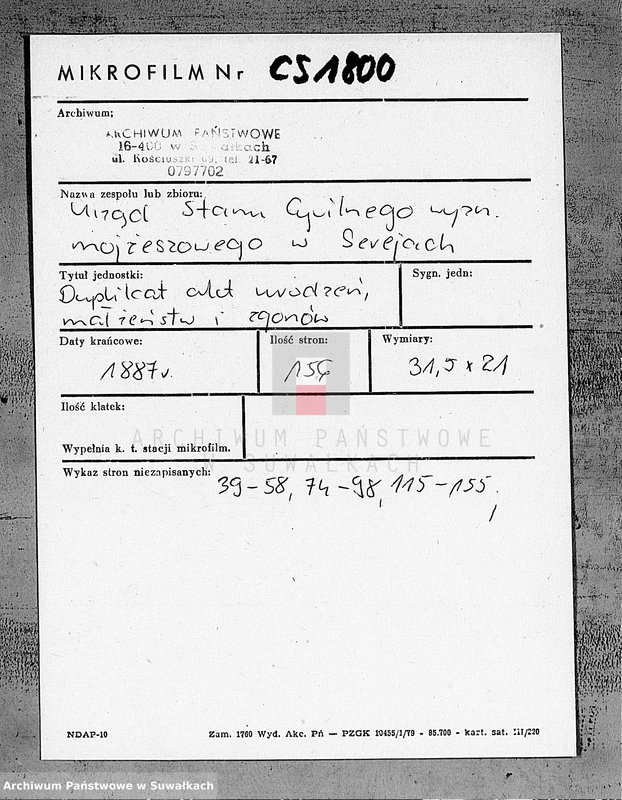 MIKROFILM Nr CS1800
Archiwum;
ARCHIWUM PAŃSTWOWE
16-400 w Suwałkach
ul. Kościuszki 69, tel. 21-67
0797702
Nazwa zespołu lub zbioru:
Urząd Stanu Cywilnego wyzn.
mojżeszowego w Serejach
Tytuł jednostki:
Sygn. jedn:
Duplikat akt urodzeń,
małżeństw i zgonów
Daty krańcowe:
Ilość stron:
Wymiary:
1887 r.
156
31,5 x 21
Ilość klatek:
Wypełnia k. t. stacji mikrofilm.
ARCHIWUM PAŃSTWOWE
W SUWAŁKACH
Wykaz stron niezapisanych:
39-58, 74-98, 115-155.
NDAP-10
Zam. 1760 Wyd. Akc. Pń — PZGK 10455/1/79 - 85.700 - kart. sat. III/220
Archiwum Państwowe w Suwałkach